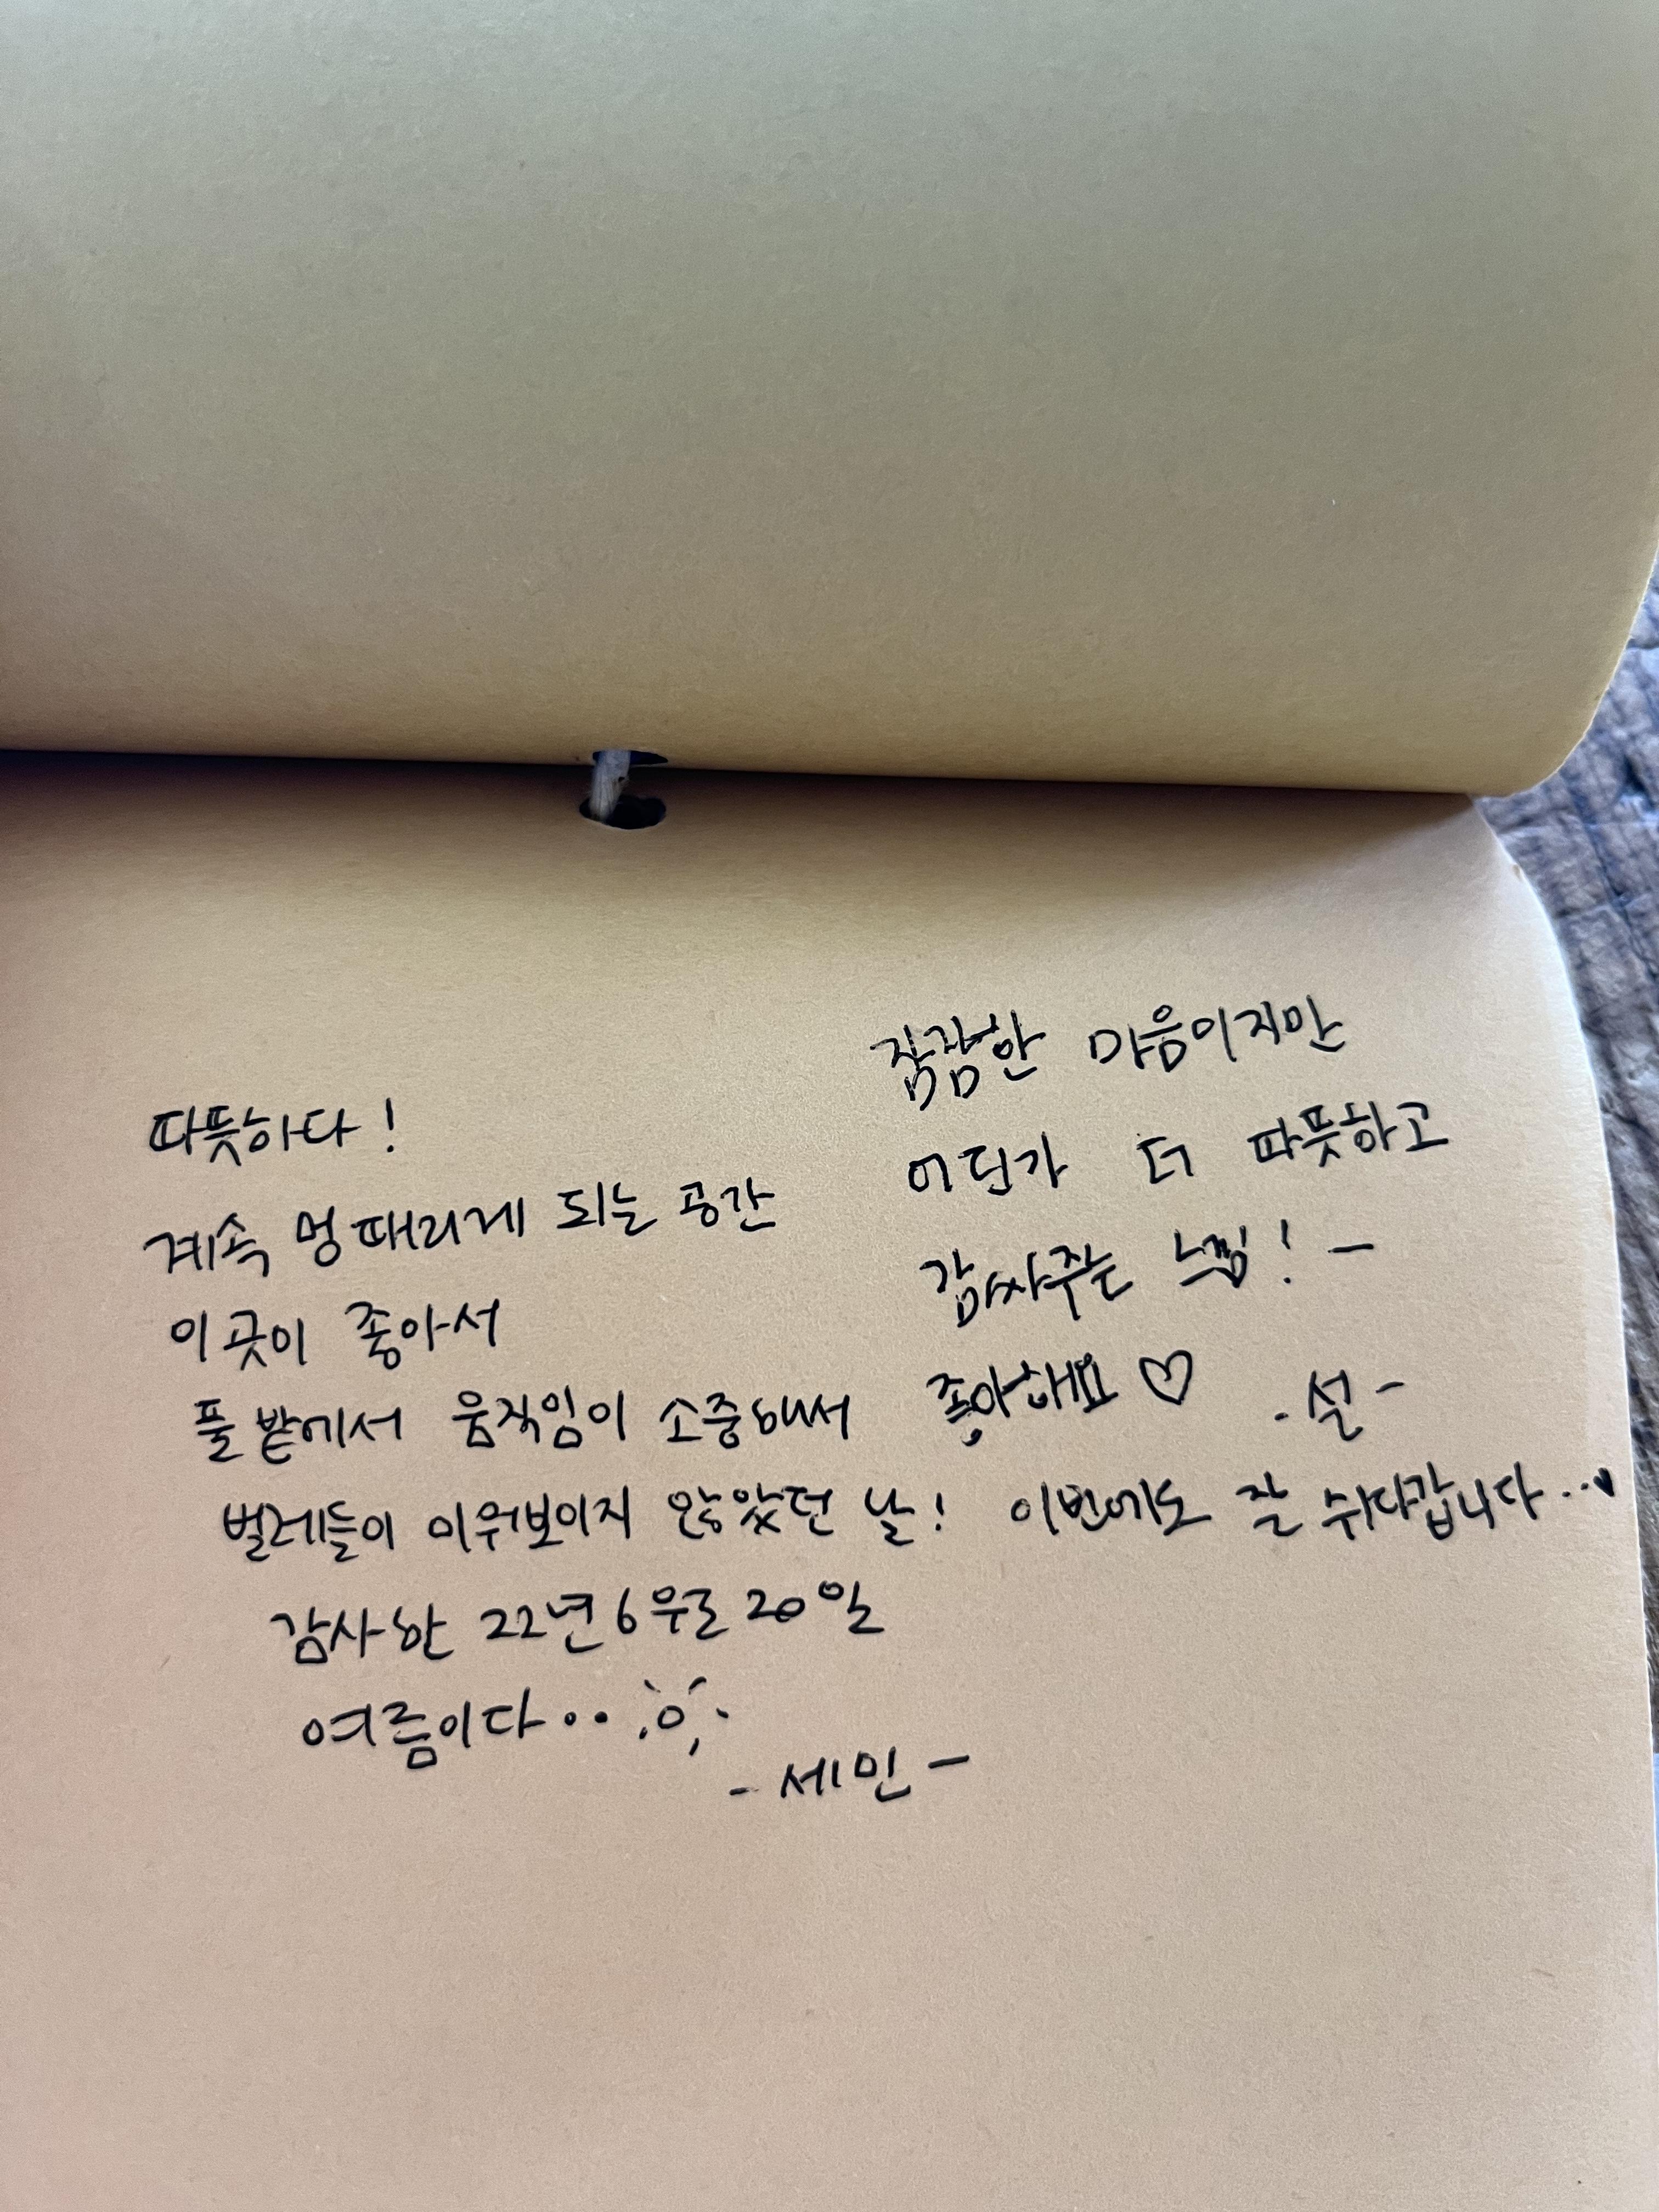 따뜻하다!
계속 멍때리게 되는 공간
이곳이 좋아서
풀밭에서 움직임이 소중해서
벌레들이 미워보이지 않았던 날!
감사한 22년 6월 20일
여름이다..
- 세인 -
잠잠한 마음이지만
어딘가 더 따뜻하고
감싸주는 느낌! -
좋아해요 ♡ - 설 -
이번에도 잘 쉬다갑니다...♥